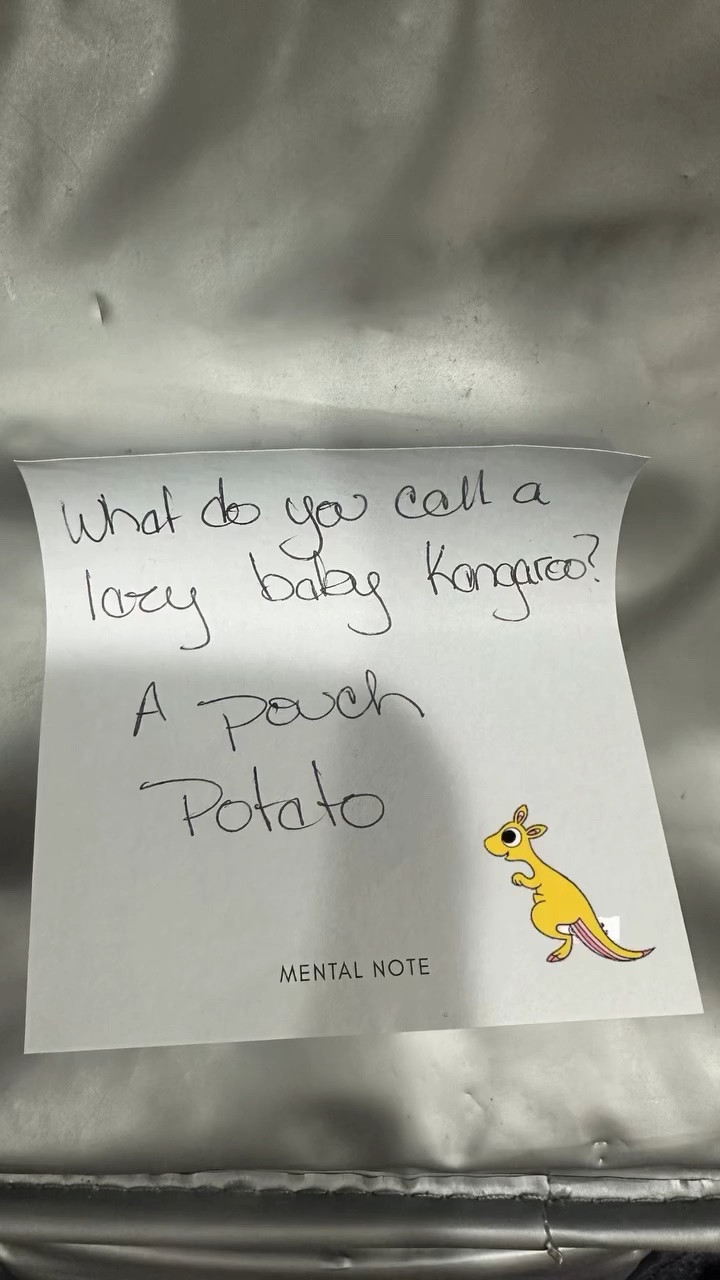 What do you call a
lazy baby Kangaroo?
A pouch
Potato
MENTAL NOTE